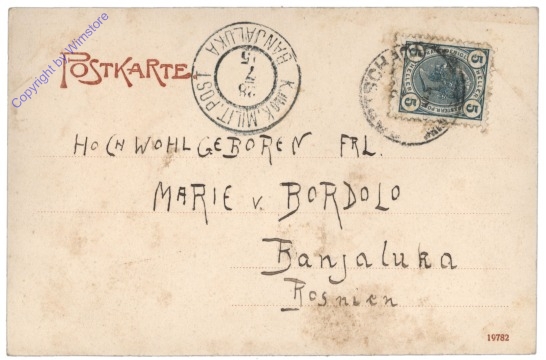 Copyright by Wimstore
POSTKARTE
K.UND K. MILIT. POST
BANJALUKA
28
7
15
5 5
5 5
HOCHWOHLGEBOREN FRL.
MARIE v. BORDOLO
Banjaluka
Bosnien
19782